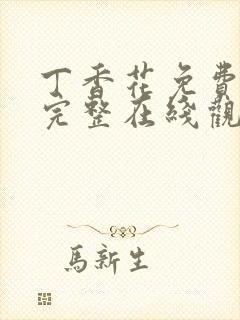 丁香花免費
完整在綫觀
馬新生